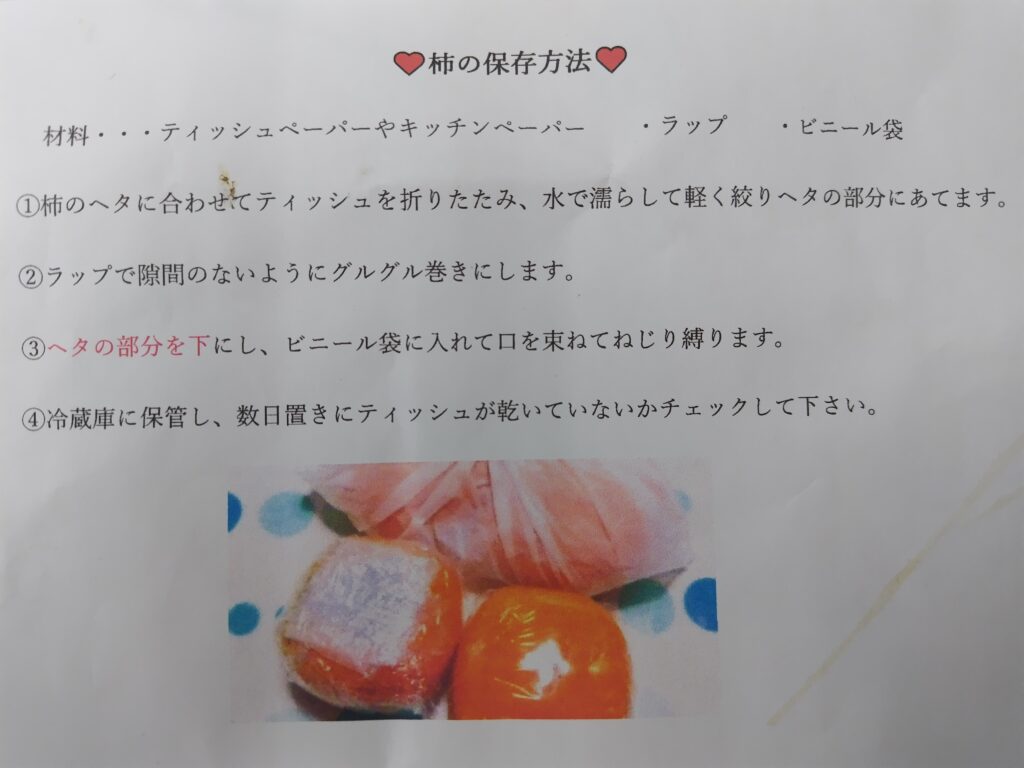 ❤柿の保存方法❤
材料・・・ティッシュペーパーやキッチンペーパー ・ラップ ・ビニール袋
①柿のヘタに合わせてティッシュを折りたたみ、水で濡らして軽く絞りヘタの部分にあてます。
②ラップで隙間のないようにグルグル巻きにします。
③ヘタの部分を下にし、ビニール袋に入れて口を束ねてねじり縛ります。
④冷蔵庫に保管し、数日置きにティッシュが乾いていないかチェックして下さい。